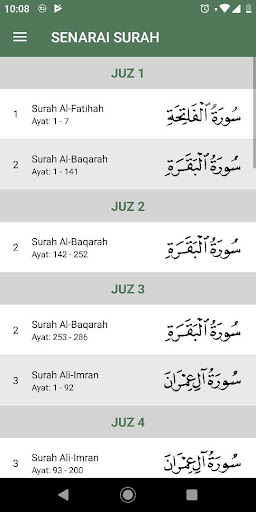 10:08
SENARAI SURAH
JUZ 1
1 Surah Al-Fatihah سُورَةُ ٱلْفَاتِحَةِ
Ayat: 1 - 7
2 Surah Al-Baqarah سُورَةُ ٱلْبَقَرَةِ
Ayat: 1 - 141
JUZ 2
2 Surah Al-Baqarah سُورَةُ ٱلْبَقَرَةِ
Ayat: 142 - 252
JUZ 3
2 Surah Al-Baqarah سُورَةُ ٱلْبَقَرَةِ
Ayat: 253 - 286
3 Surah Ali-Imran سُورَةُ آلِ عِمْرَانَ
Ayat: 1 - 92
JUZ 4
3 Surah Ali-Imran سُورَةُ آلِ عِمْرَانَ
Ayat: 93 - 200